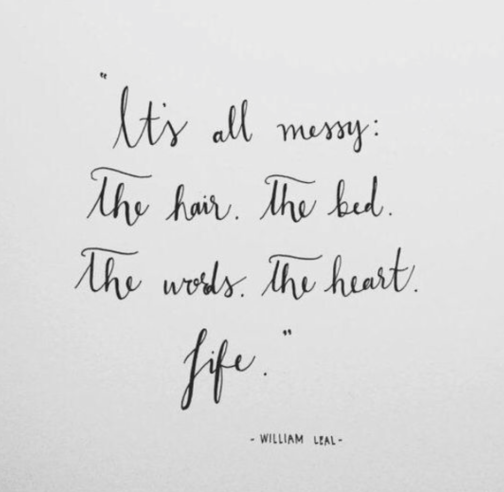 "It's all messy:
The hair. The bed.
The words. The heart.
Life."
- WILLIAM LEAL -